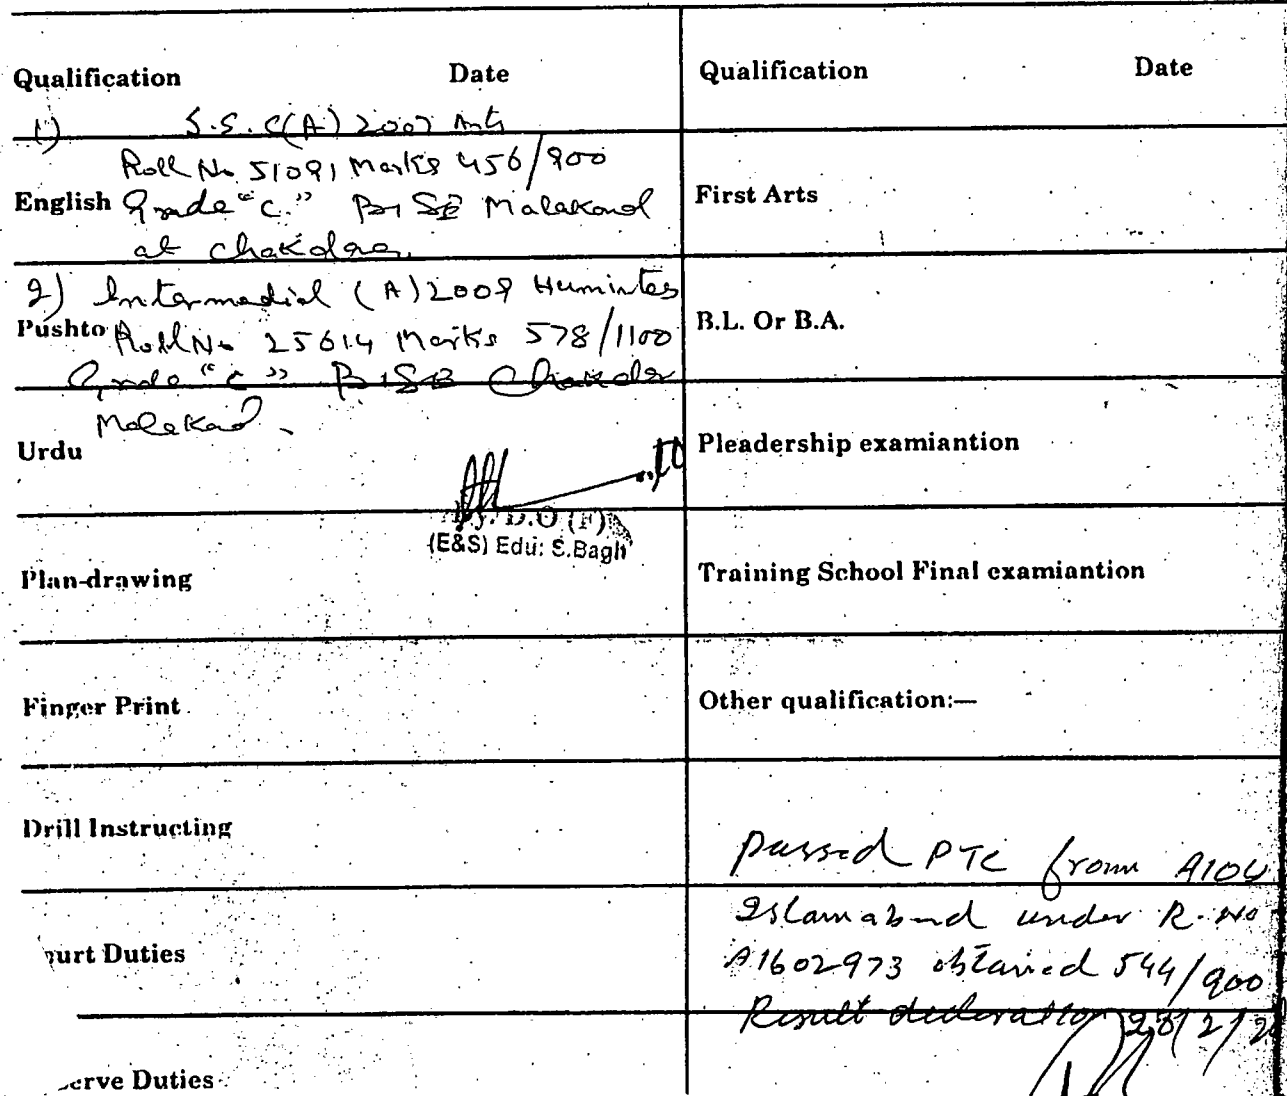 Qualification Date
1) S.S.C(A) 2007 Arts
Roll No 51091 Marks 456/900
English Grade "C." BISE Malakand
at Chakdara
2) Intermedial (A) 2009 Humintes
Pushto Roll No 25614 Marks 578/1100
Grade "C" BISE Chakder
Malakad.
Urdu
Dy. D.O (F)
(E&S) Edu: S.Bagh
Plan-drawing
Finger Print
Drill Instructing
ourt Duties
erve Duties
Qualification Date
First Arts
B.L. Or B.A.
Pleadership examiantion
Training School Final examiantion
Other qualification:—
passed PTC from AIOU
Islamabad under R. No
A1602973 obtained 544/900
Result declaration 28/2/2